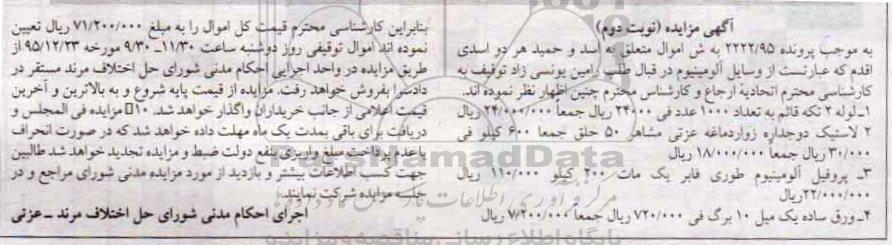 آگهی مزایده (نوبت دوم)
به موجب پرونده ۲۲۲۲/۹۵ به ش اموال متعلق به اسد و حمید هر دو اسدی
اقدم که عبارتست از وسایل آلومینیوم در قبال طلب رامین یونسی زاد توقیف به
کارشناسی محترم اتحادیه ارجاع و کارشناس محترم چنین اظهار نظر نموده اند.
۱ـ لوله ۲ تکه قائم به تعداد ۱۰۰۰ عدد فی ۲۴۰۰۰ ریال جمعاً ۲۴/۰۰۰/۰۰۰ ریال
۲ لاستیک دوجداره زواردماغه عزتی مشاهر ۵۰ حلق جمعا ۶۰۰ کیلو فی
۳۰/۰۰۰ ریال جمعاً ۱۸/۰۰۰/۰۰۰ ریال
۳ـ پروفیل آلومینیوم طوری فابر یک مات ۲۰۰ کیلو ۱۱۰/۰۰۰ ریال
۲۲/۰۰۰/۰۰۰ ریال
۴ـ ورق ساده یک میل ۱۰ برگ فی ۷۲۰/۰۰۰ ریال جمعا ۷/۲۰۰/۰۰۰ ریال
بنابراین کارشناسی محترم قیمت کل اموال را به مبلغ ۷۱/۲۰۰/۰۰۰ ریال تعیین
نموده اند اموال توقیفی روز دوشنبه ساعت ۱۱/۳۰ـ ۹/۳۰ مورخه ۹۵/۱۲/۲۳ از
طریق مزایده در واحد اجرایی احکام مدنی شورای حل اختلاف مرند مستقر در
دادسرا بفروش خواهد رفت. مزایده از قیمت پایه شروع و به بالاترین و آخرین
قیمت اعلامی از جانب خریداران واگذار خواهد شد. ۱۰٪ مزایده فی المجلس و
دریافت برای باقی بمدت یک ماه مهلت داده خواهد شد که در صورت انحراف
یا عدم پرداخت مبلغ واریزی بنفع دولت ضبط و مزایده تجدید خواهد شد طالبین
جهت کسب اطلاعات بیشتر و بازدید از مورد مزایده مدنی شورای مراجع و در
جلسه مزایده شرکت نمایند.
اجرای احکام مدنی شورای حل اختلاف مرند ـ عزتی
ParsNamadData